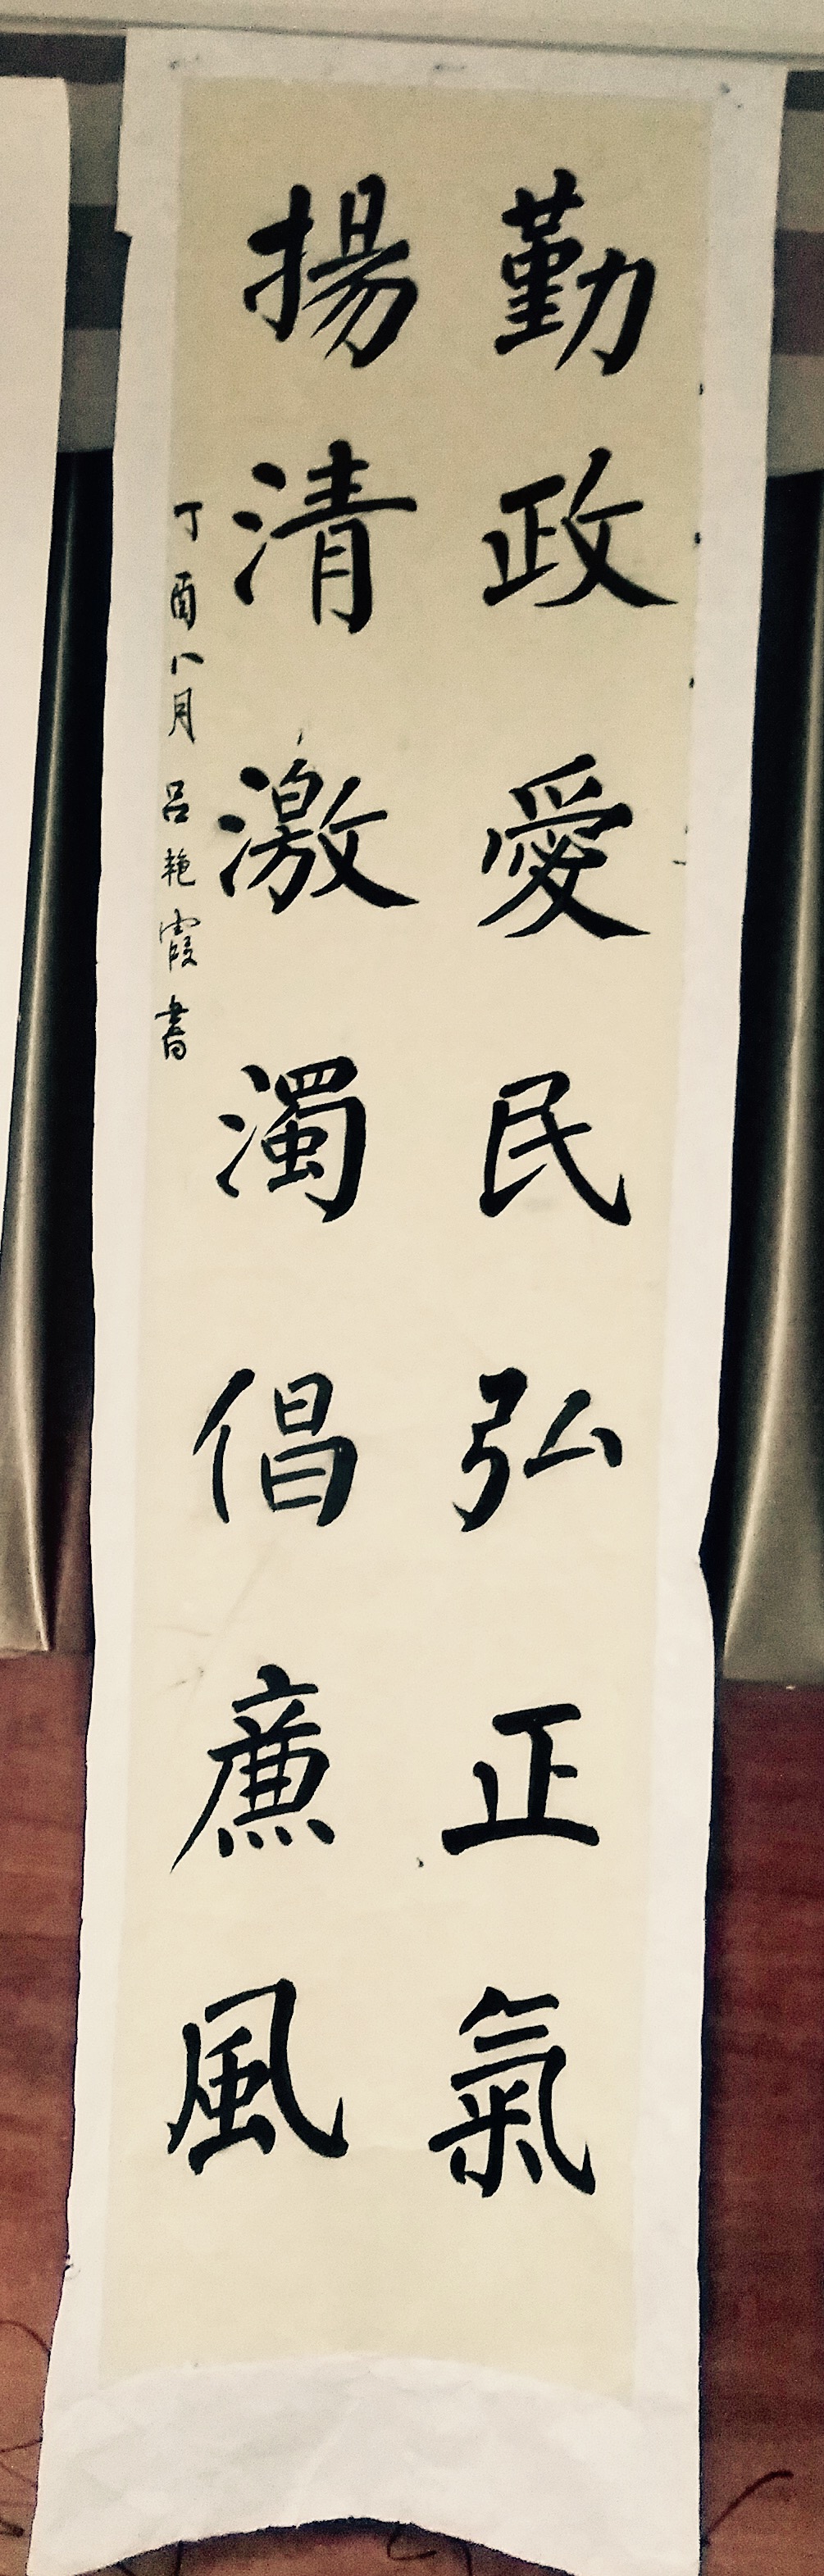 勤政愛民弘正氣
揚清激濁倡廉風
丁酉八月吕艳霞書